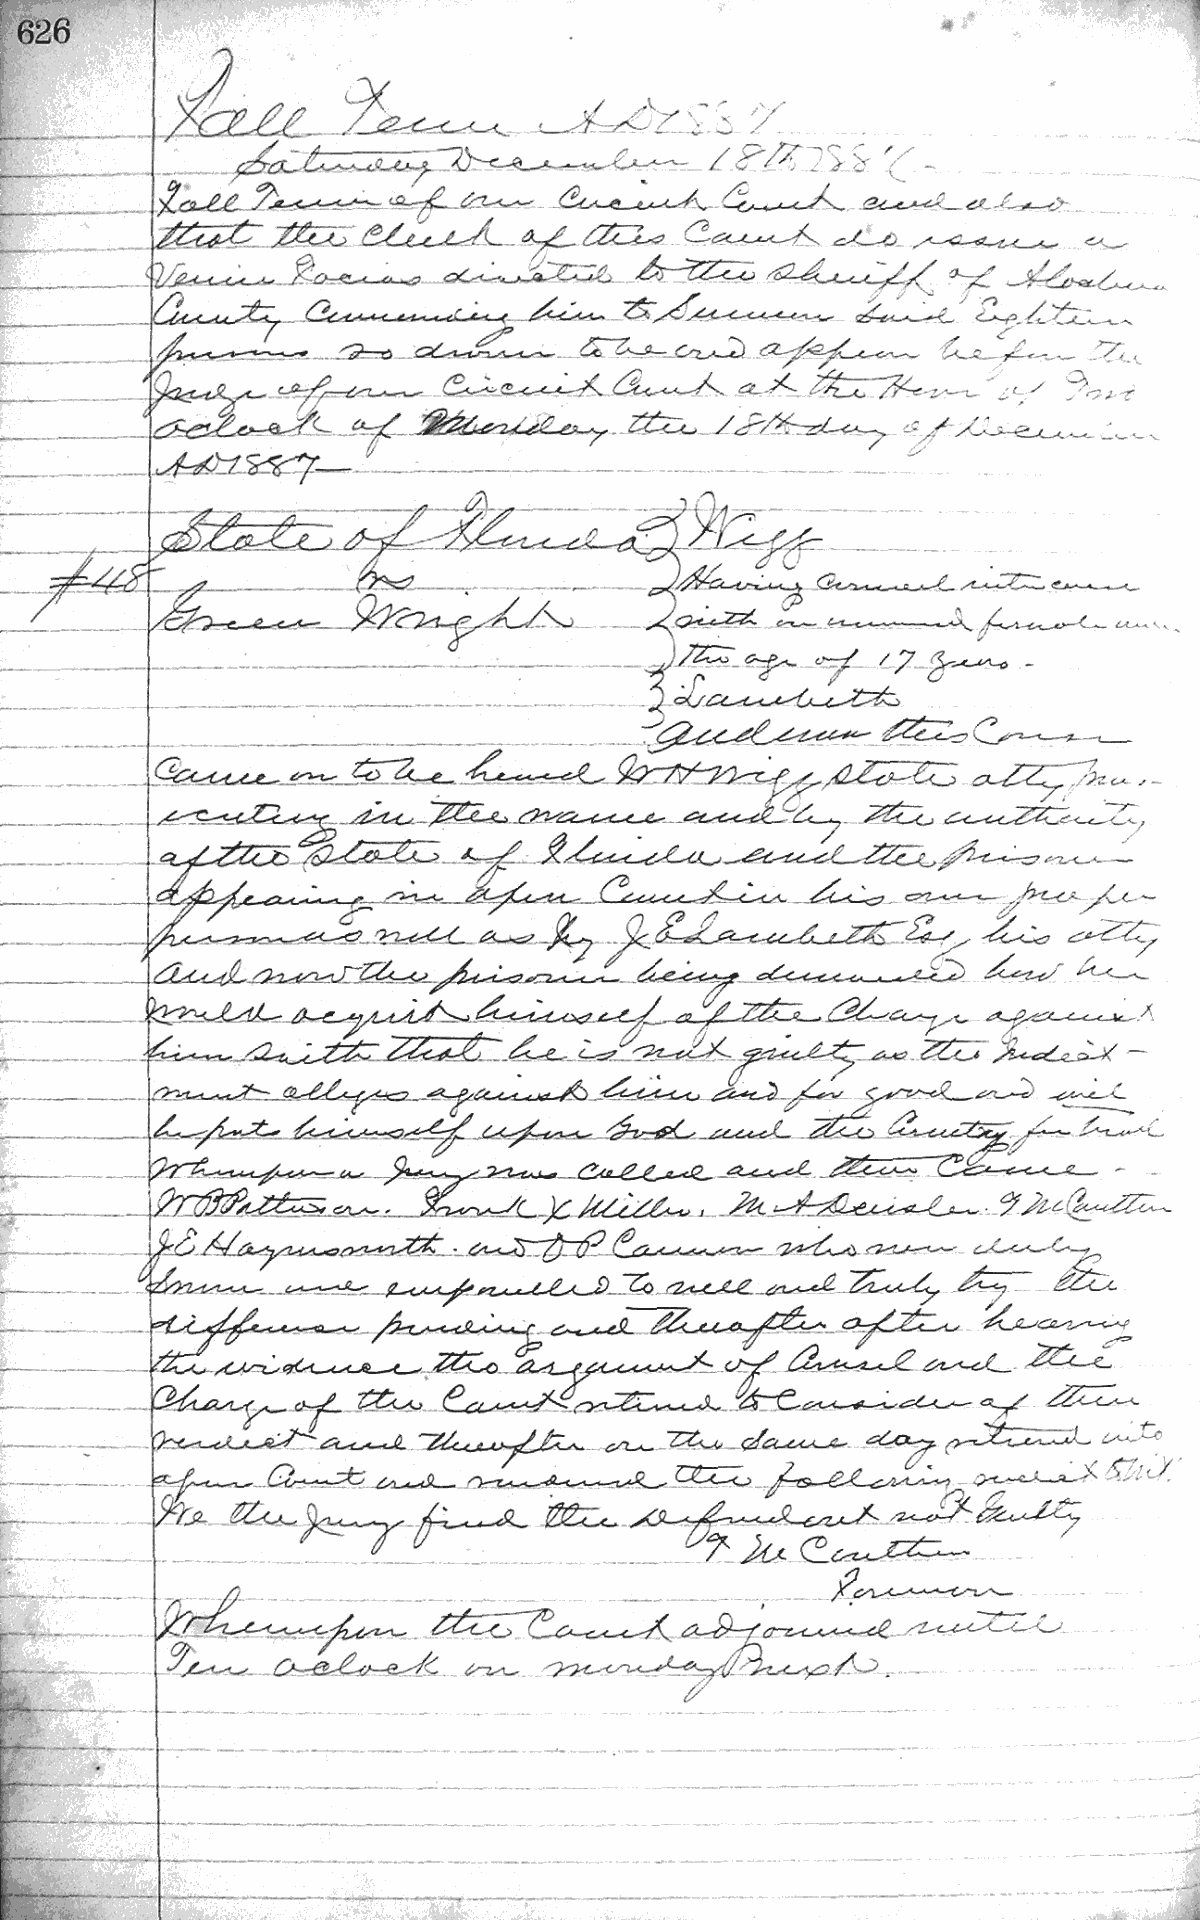 626
Fall Term AD 1887
Saturday December 18th 1887
Fall Term of our Circuit Court and also
that the Clerk of this Court do issue a
Venire Facias directed to the Sheriff of Alachua
County Commanding him to Summon said Eighteen
persons so drawn to be and appear before the
Judge of our Circuit Court at the Hour of
oclock of Monday the 18th day of December
AD 1887
State of Florida } Wigg
#48 vs } Having Carnal intercourse
Green Wright } with an unmarried female under
} the age of 17 years -
} Lambeth
} And now this Cause
Came on to be heard W H Wigg State atty pros-
ecuting in the name and by the authority
of the State of Florida and the prisoner
appearing in open Court in his own proper
person as well as by J E Lambeth Esq, his atty
And now the prisoner being demanded how he
would acquit himself of the Charge against
him Saith that he is not guilty as the Indict-
ment alleges against him and for good and evil
he puts himself upon God and the Country for trial
Whereupon a Jury was called and then Came
W B Patterson. Frank X Miller. M A Deisler. F McCarthur
J E Haymsworth. and J P Cannon who were duly
Sworn and empanelled to well and truly try the
difference pending and thereafter after hearing
the evidence the argument of Counsel and the
Charge of the Court retired to Consider of their
verdict and thereafter on the same day returned into
open Court and rendered the following verdict to wit.
We the Jury find the Defendant not Guilty
F McCarthur
Foreman
Whereupon the Court adjourned until
Ten oclock on Monday next.